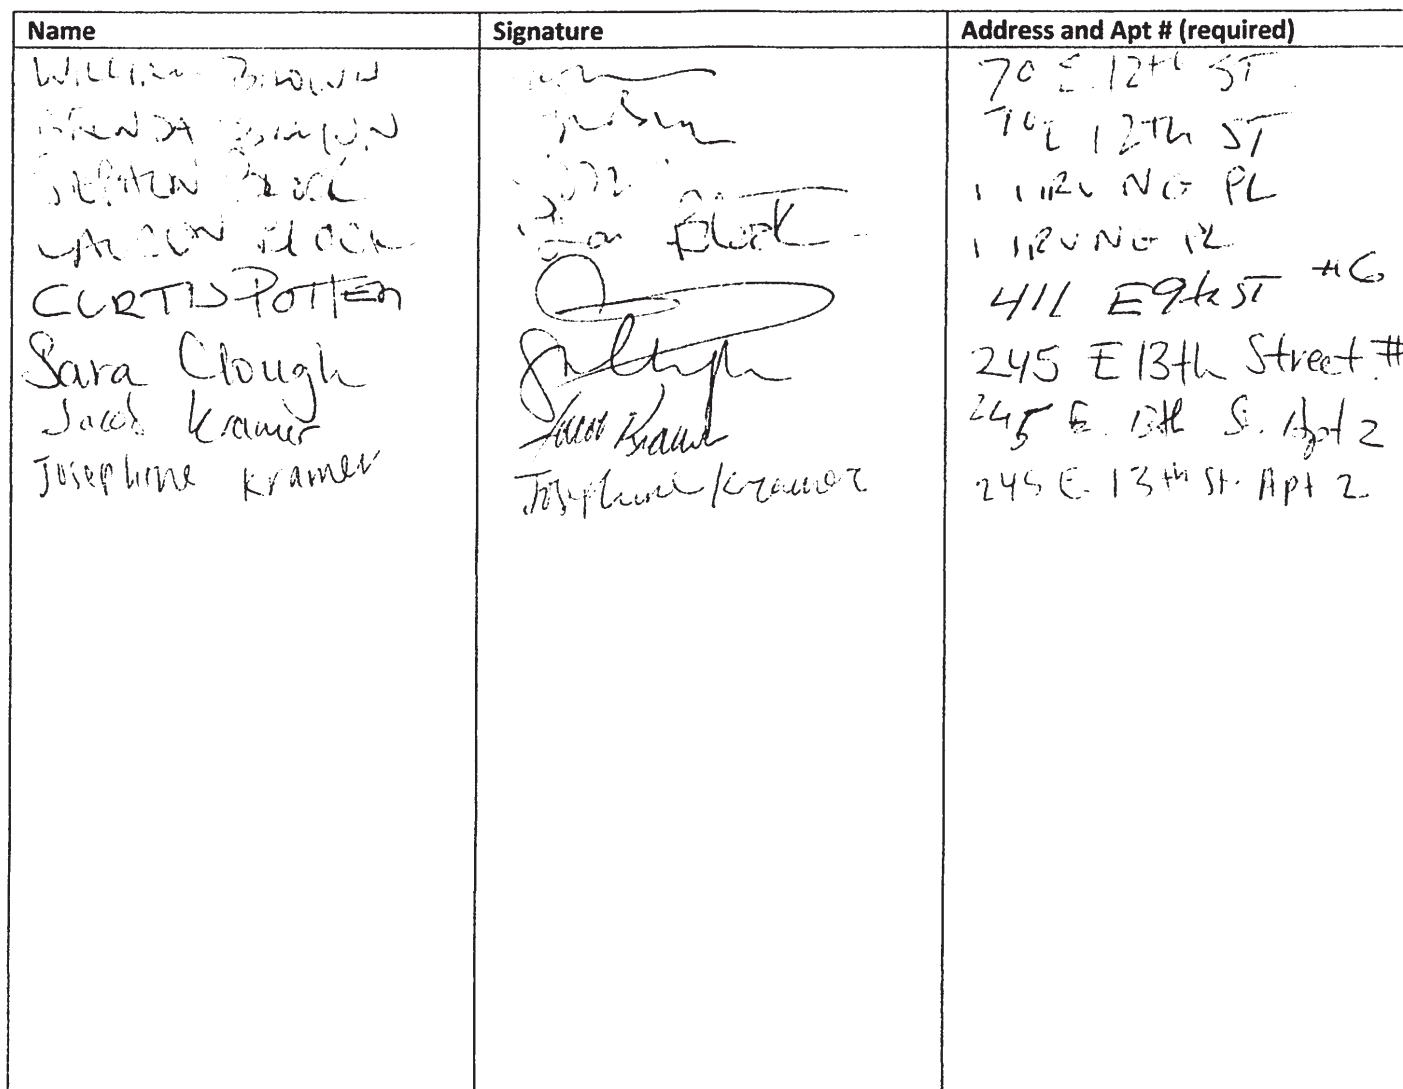 Name Signature Address and Apt # (required)
WILLIAM BROWN 70 E. 12th ST.
BRENDA BROWN 70 E 12th ST
STEPHEN BLOCK 1 IRVNG PL
BLOCK Block 1 IRVNG PL
CURTIS POTTER 411 E 9th ST #6
Sara Clough 245 E 13th Street #
Jacob Kramer Jacob Kramer 245 E. 13th St. Apt 2
Josephine Kramer Josephine Kramer 245 E. 13th St. Apt 2